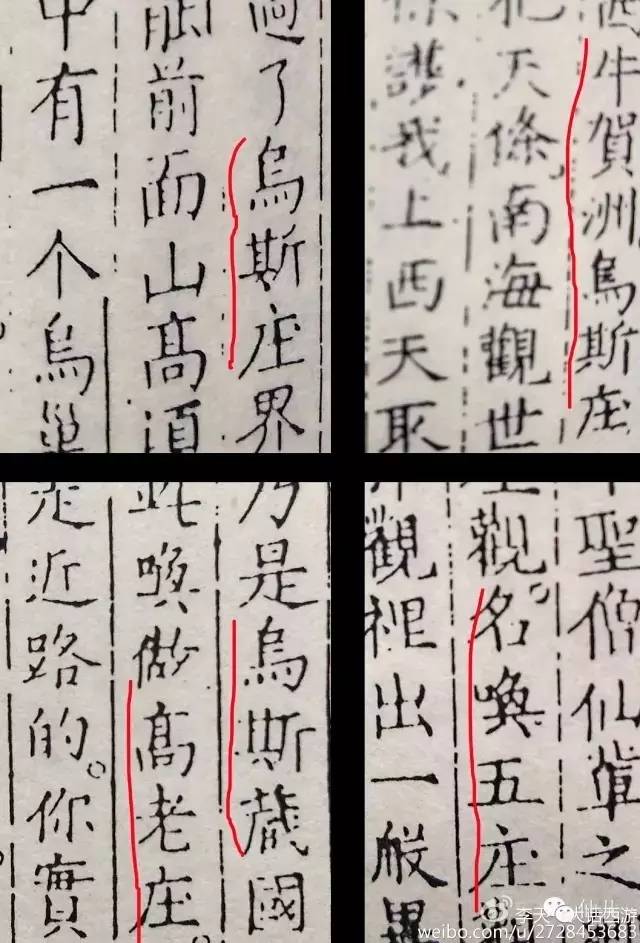 過了烏斯庄界
前面山高頂
中有一个烏巢
西牛賀洲烏斯庄
犯天條南海觀世
保護我上西天取
乃是烏斯藏國
此喚做高老庄
是近路的。你實
聖僧仙輩之
觀。名喚五庄
觀裡出一般異
李天飞大话西游
weibo.com/u/2728453683